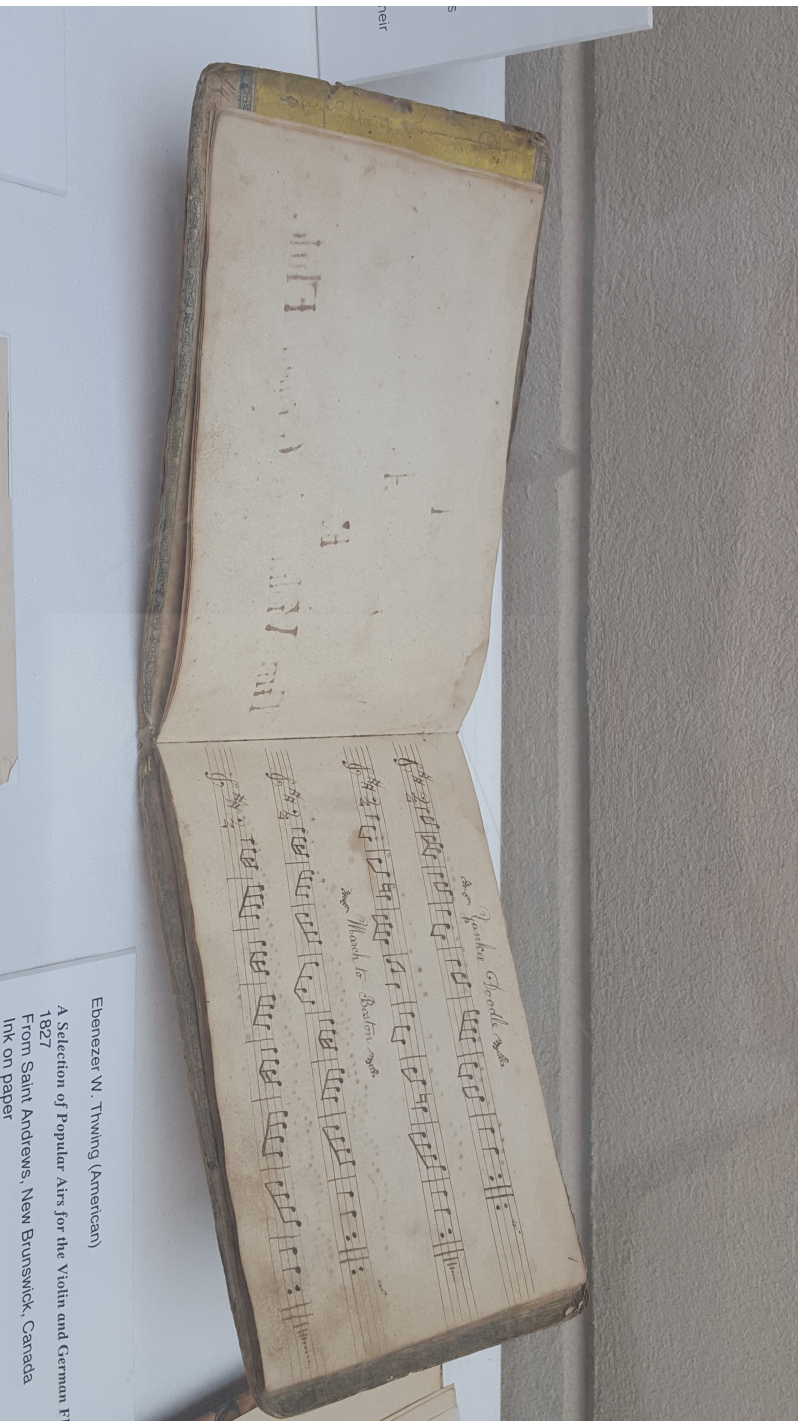 s
heir
Yankee Doodle
March to Boston
Ebenezer W. Thwing (American)
A Selection of Popular Airs for the Violin and German Fl
1827
From Saint Andrews, New Brunswick, Canada
Ink on paper